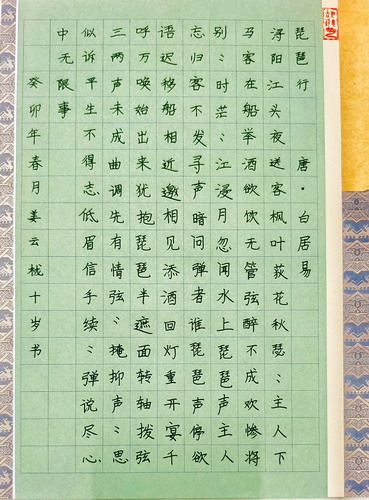 琵琶行 唐·白居易
浔阳江头夜送客枫叶荻花秋瑟〻主人下
马客在船举酒欲饮无管弦醉不成欢惨将
别〻时茫〻江浸月忽闻水上琵琶声主人
忘归客不发寻声暗问弹者谁琵琶声停欲
语迟移船相近邀相见添酒回灯重开宴千
呼万唤始出来犹抱琵琶半遮面转轴拨弦
三两声未成曲调先有情弦〻掩抑声〻思
似诉平生不得志低眉信手续〻弹说尽心
中无限事
癸卯年春月姜云十岁书